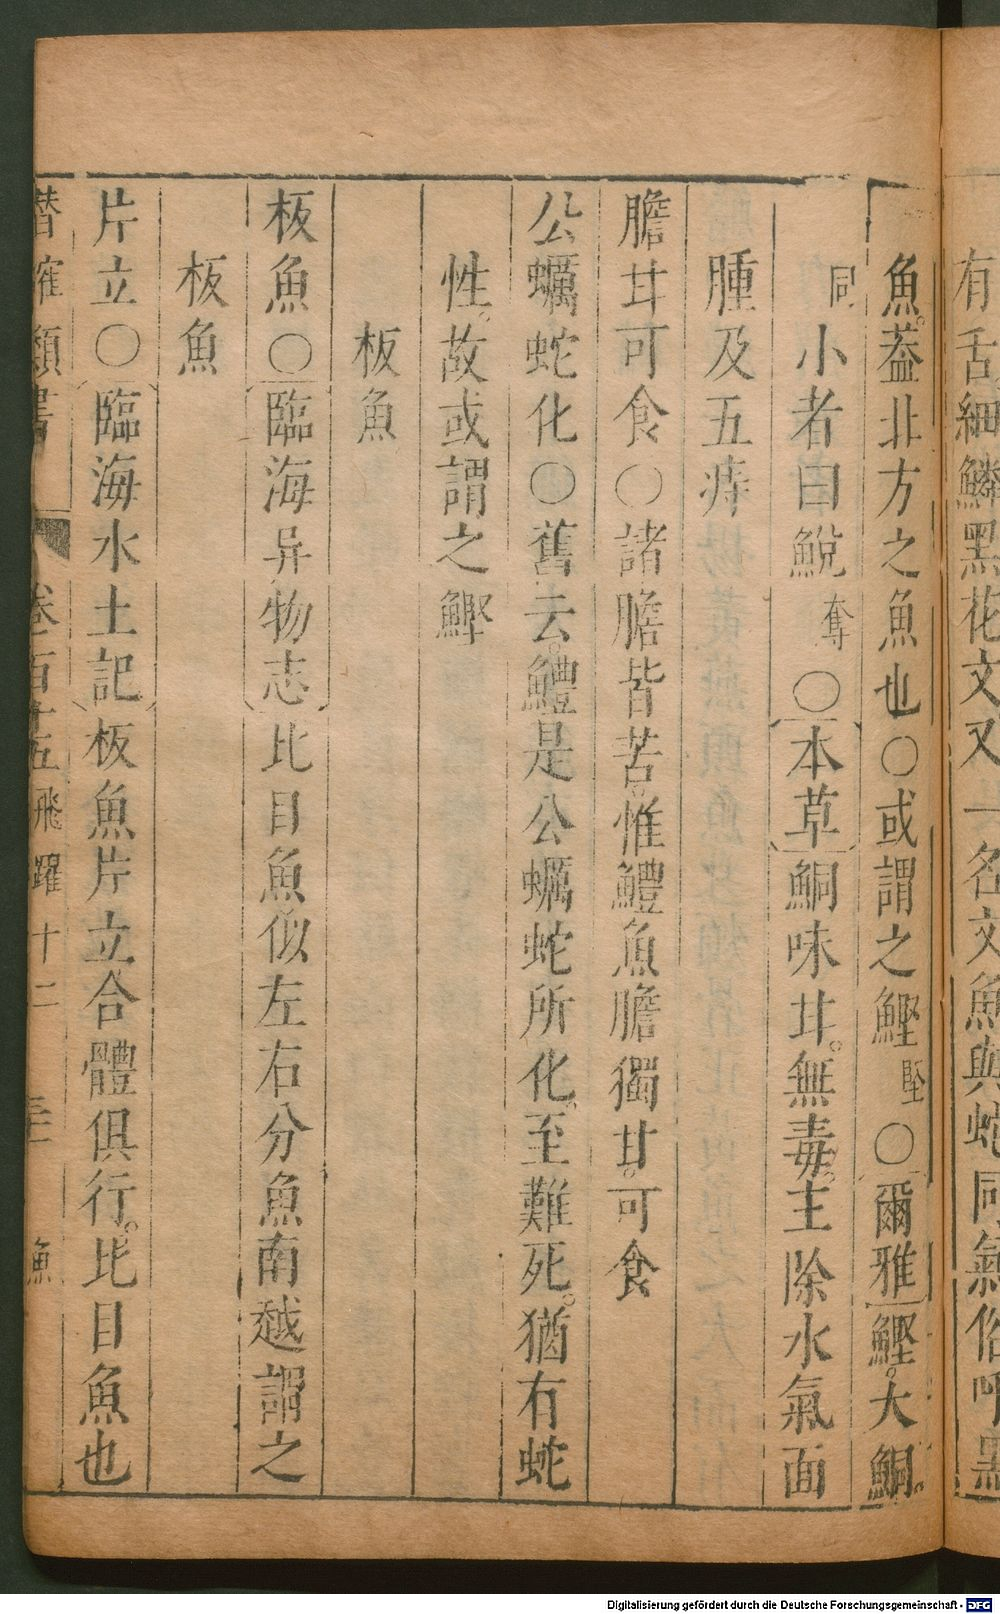 有舌細鱗黑花文又一名文魚與蛇同氣俗呼黑
魚。葢北方之魚也〇或謂之鰹堅〇爾雅鰹。大鮦。
同小者曰鮵奪〇本草鮦味甘。無毒。主除水氣面
腫及五痔
膽甘可食〇諸膽皆苦。惟鱧魚膽獨甘。可食
公蠣蛇化〇舊云。鱧是公蠣蛇所化。至難死。猶有蛇
性。故或謂之鰹
板魚
板魚〇臨海异物志比目魚似左右分魚南越謂之
板魚
片立〇臨海水土記板魚片立合體俱行。比目魚也
潛確類書 卷一百十五 飛躍十二 魚
Digitalisierung gefördert durch die Deutsche Forschungsgemeinschaft - DFG